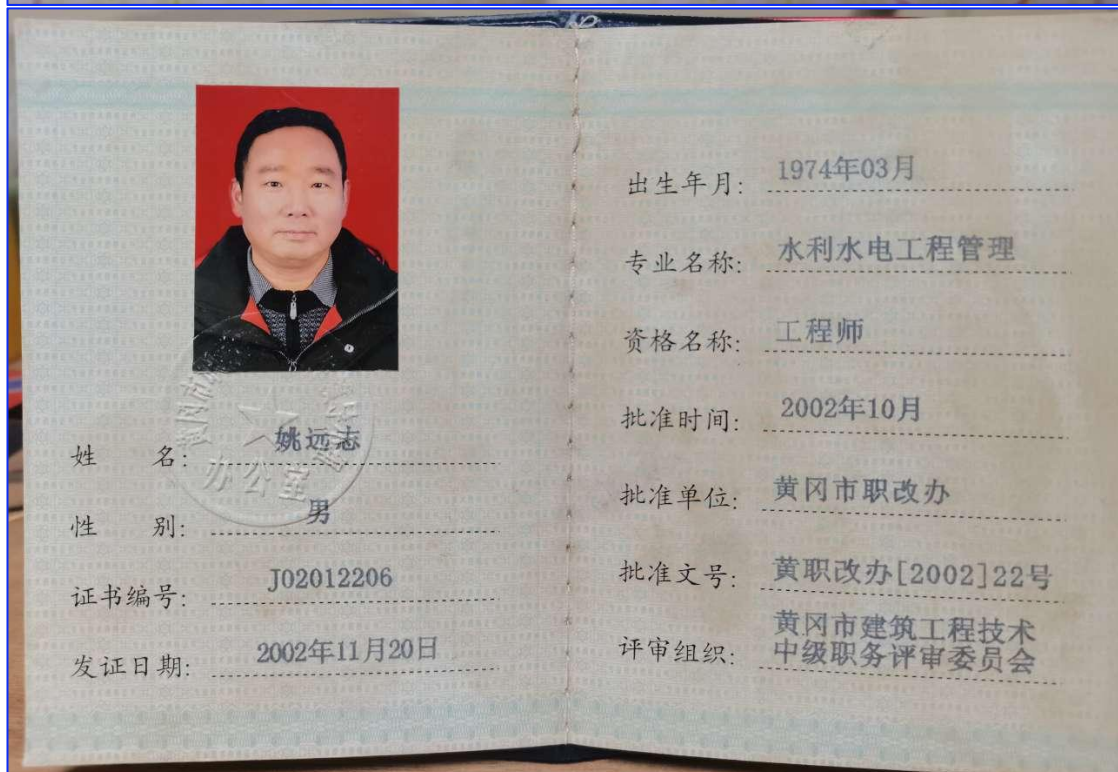 姓 名: 姚远志
性 别: 男
证书编号: J02012206
发证日期: 2002年11月20日
办公室
出生年月: 1974年03月
专业名称: 水利水电工程管理
资格名称: 工程师
批准时间: 2002年10月
批准单位: 黄冈市职改办
批准文号: 黄职改办[2002]22号
评审组织: 黄冈市建筑工程技术
中级职务评审委员会